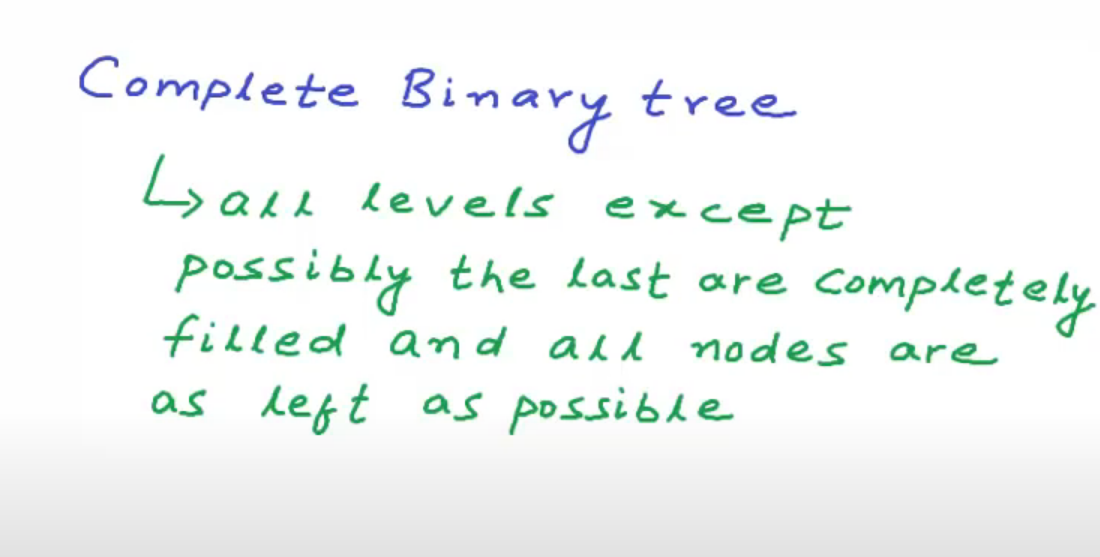 Complete Binary tree
↳ all levels except
possibly the last are completely
filled and all nodes are
as left as possible